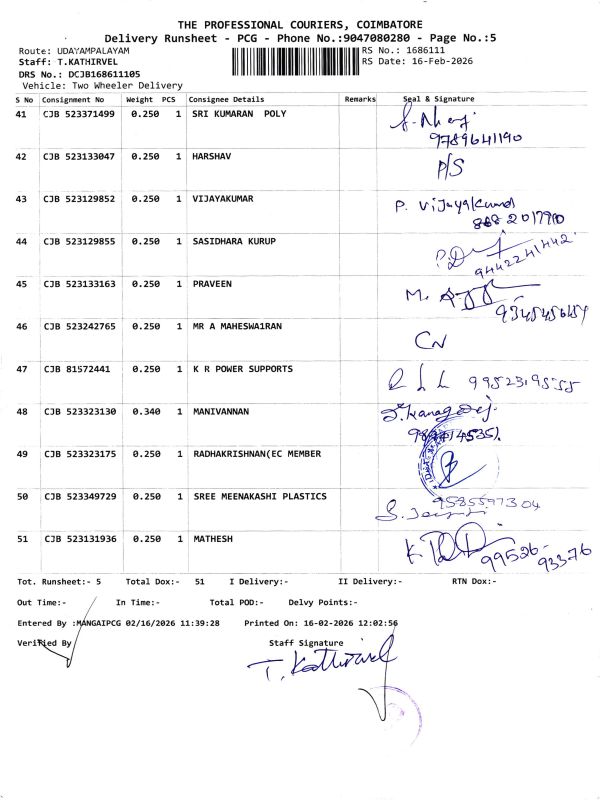 THE PROFESSIONAL COURIERS, COIMBATORE
Delivery Runsheet - PCG - Phone No.:9047080280 - Page No.:5
Route: UDAYAMPALAYAM RS No.: 1686111
Staff: T.KATHIRVEL RS Date: 16-Feb-2026
DRS No.: DCJB168611105
Vehicle: Two Wheeler Delivery
S No Consignment No Weight PCS Consignee Details Remarks Seal & Signature
41 CJB 523371499 0.250 1 SRI KUMARAN POLY
9789641190
42 CJB 523133047 0.250 1 HARSHAV P/S
43 CJB 523129852 0.250 1 VIJAYAKUMAR P. Vijayakumar
44 CJB 523129855 0.250 1 SASIDHARA KURUP
9442241442
45 CJB 523133163 0.250 1 PRAVEEN M.
46 CJB 523242765 0.250 1 MR A MAHESWA1RAN CN
47 CJB 81572441 0.250 1 K R POWER SUPPORTS
48 CJB 523323130 0.340 1 MANIVANNAN
49 CJB 523323175 0.250 1 RADHAKRISHNAN(EC MEMBER
50 CJB 523349729 0.250 1 SREE MEENAKASHI PLASTICS 9585597304
51 CJB 523131936 0.250 1 MATHESH K.
99526-
93376
Tot. Runsheet:- 5 Total Dox:- 51 I Delivery:- II Delivery:- RTN Dox:-
Out Time:- In Time:- Total POD:- Delvy Points:-
Entered By :MANGAIPCG 02/16/2026 11:39:28 Printed On: 16-02-2026 12:02:56
Verified By Staff Signature
T. Kathirvel